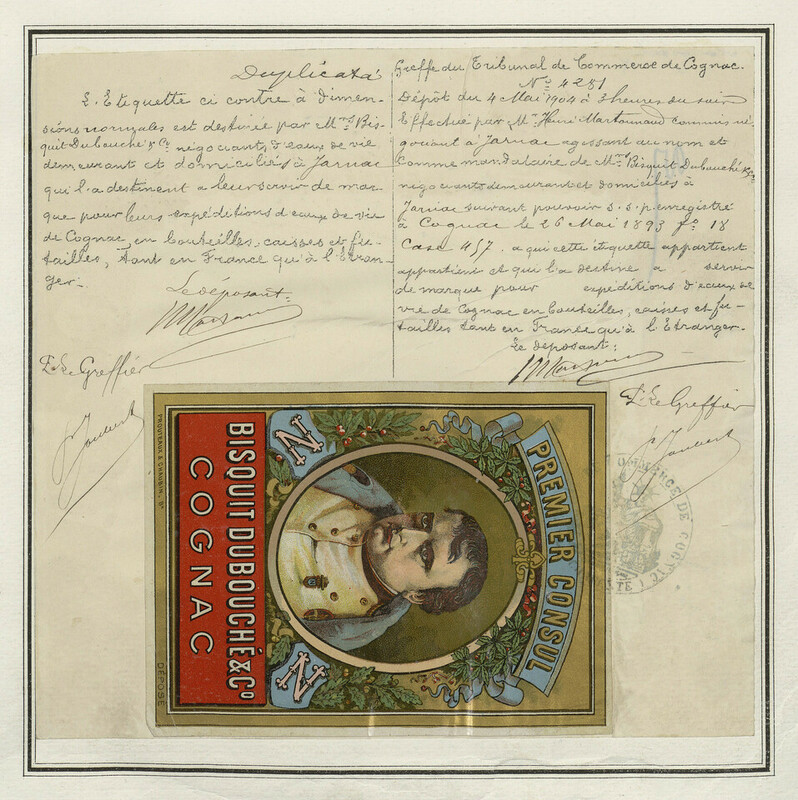 Duplicata
L. Etiquette ci contre à dimen-
sions normales est destinée par Mrs Bis-
quit Dubouché & Co négociants d'eaux de vie
demeurant et domiciliés à Jarnac
qui l.a destinent a leur servir de mar-
que pour leurs expéditions d'eaux de vie
de Cognac, en bouteilles, caisses et fu-
tailles, tant en France qu'à l'Etran-
ger.
Le déposant:
L. Le Greffier
Greffe du Tribunal de Commerce de Cognac.
No 4251
Dépôt du 4 Mai 1904 à 3 heures du soir
Effectué par Mr Henri Martonnaud commis né-
gociant à Jarnac agissant au nom et
comme mandataire de Mrs Bisquit Dubouché & Co
négociants demeurant et domiciliés à
Jarnac suivant pouvoir s.s.p. enregistré
à Cognac le 26 Mai 1893 fo 18
Case 457. a qui cette étiquette appartient
appartient et qui l.a destine a servir
de marque pour expéditions d'eaux de
vie de Cognac en bouteilles, caisses et fu-
tailles tant en France qu'à l'Etranger.
Le déposant:
L. Le Greffier
PREMIER CONSUL
N N
BISQUIT DUBOUCHÉ & Co
COGNAC
PROUTEAUX & CHAUBIN, Pt
DÉPOSÉ
DE COGNAC